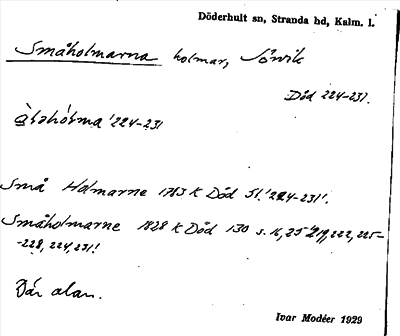 Döderhult sn, Stranda hd, Kalm. l.
Småholmarna holmar, Sörvik
Död 224-231.
224-231
Små Holmarne 1783 K Död 51! 224-231!
Småholmarne 1828 K Död 130 s. 16, 25 219, 222, 225-
-228, 224, 231!
Bär alar.
Ivar Modéer 1929